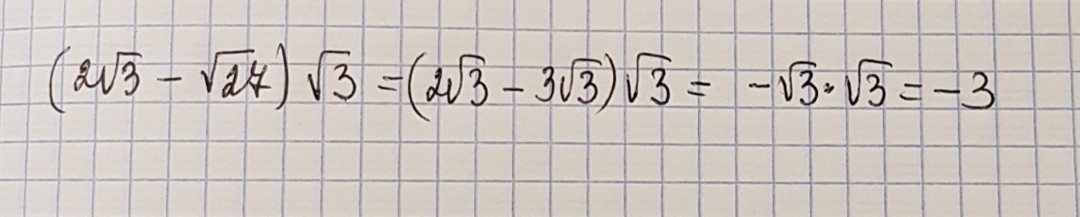 (2√3 − √27) √3 = (2√3 − 3√3) √3 = −√3 · √3 = −3